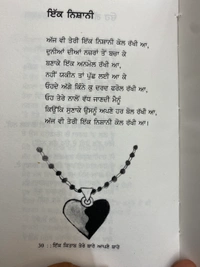 ਇੱਕ ਨਿਸ਼ਾਨੀ
ਅੱਜ ਵੀ ਤੇਰੀ ਇੱਕ ਨਿਸ਼ਾਨੀ ਕੋਲ ਰੱਖੀ ਆ,
ਦੁਨੀਆਂ ਦੀਆਂ ਨਜ਼ਰਾਂ ਤੋਂ ਬਚਾ ਕੇ
ਬਣਾਕੇ ਇੱਕ ਅਨਮੋਲ ਰੱਖੀ ਆ,
ਨਹੀਂ ਯਕੀਨ ਤਾਂ ਪੁੱਛ ਲਈਂ ਆ ਕੇ
ਓਹਦੇ ਅੱਗੇ ਕਿੰਨੇ ਕੁ ਦਰਦ ਫਰੋਲ ਰੱਖੀ ਆ,
ਓਹ ਤੇਰੇ ਨਾਲੋਂ ਵੱਧ ਜਾਣਦੀ ਮੈਨੂੰ
ਕਿਉਂਕਿ ਸੁਣਾਕੇ ਉਸਨੂੰ ਅਪਣੇ ਹਰ ਬੋਲ ਰੱਖੀ ਆ,
ਅੱਜ ਵੀ ਤੇਰੀ ਇੱਕ ਨਿਸ਼ਾਨੀ ਕੋਲ ਰੱਖੀ ਆ।
ਇੱਕ ਕਿਤਾਬ ਤੇਰੇ ਬਾਰੇ ਆਪਣੇ ਬਾਰੇ